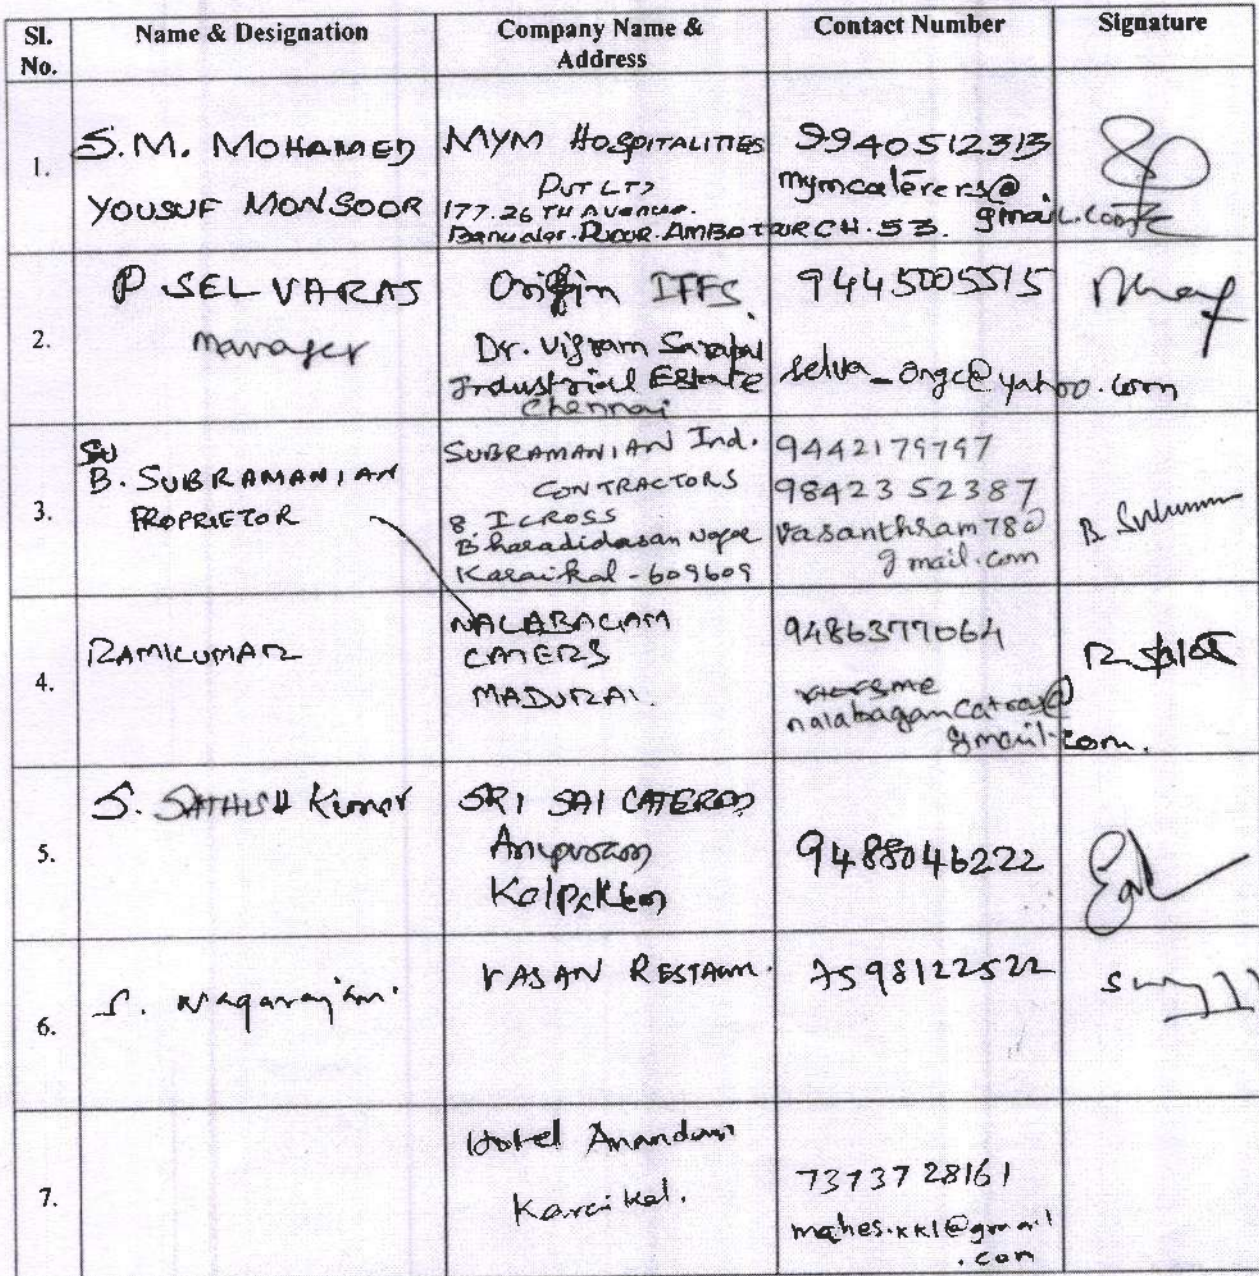 Sl. No.
Name & Designation
Company Name & Address
Contact Number
Signature
1.
S.M. MOHAMED
YOUSUF MONSOOR
MYM HOSPITALITIES
PVT LTD
177. 26 TH AVENUE.
AMBATTUR CH. 53.
9940512313
mymcaterers@
gmail.com
2.
P SELVARAJ
manager
Origin ITFS
Dr. Vigram Sarabai
Industrial Estate
Chennai
9445005515
selva_ongc@yahoo.com
3.
B. SUBRAMANIAN
PROPRIETOR
SUBRAMANIAN Ind.
CONTRACTORS
8 I CROSS
Bharadidasan Nagar
Karaikal - 609609
9442179797
98423 52387
vasanthram78@
gmail.com
B
4.
RAMKUMAR
NALABAGAM
CATERS
MADURAI.
9486377064
gmail.com.
5.
S. SATHISH Kumar
SRI SAI CATERERS
Anupuram
Kalpakkam
9488046222
6.
S. Nagarajan
VASAN RESTAUM.
7598122522
7.
Hotel Anandam
Karaikal.
73737 28161
mahes.kkl@gmail
.com